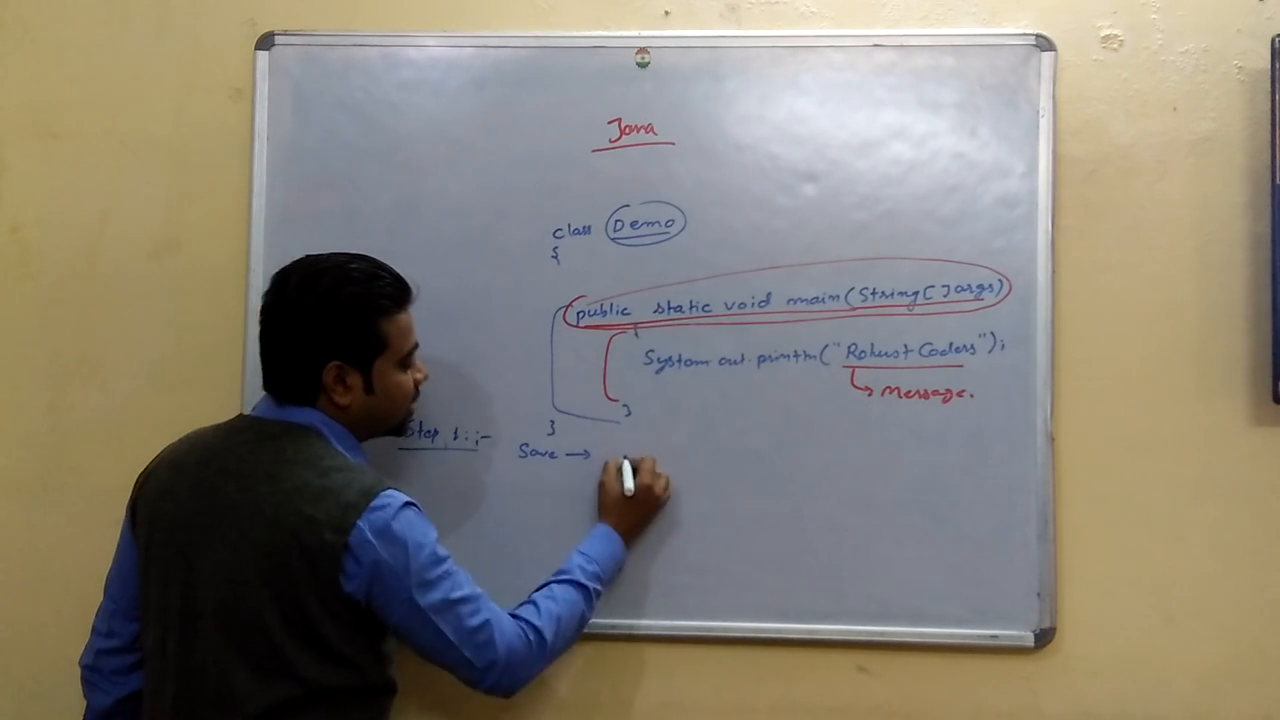 Java
class Demo
{
public static void main(String[]args)
{
System.out.println("Robust Coders");
Message.
}
}
Step 1:-
Save →